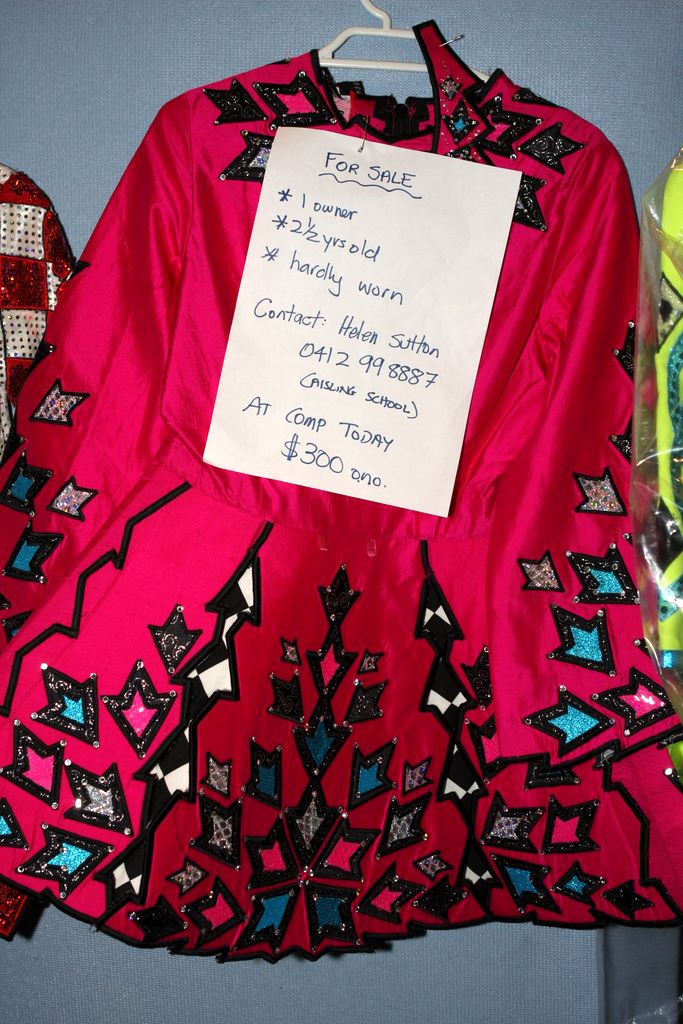 FOR SALE
* 1 owner
* 2 1/2 yrs old
* hardly worn
Contact: Helen Sutton
0412 998887
(AISLING SCHOOL)
AT COMP TODAY
$300 ono.